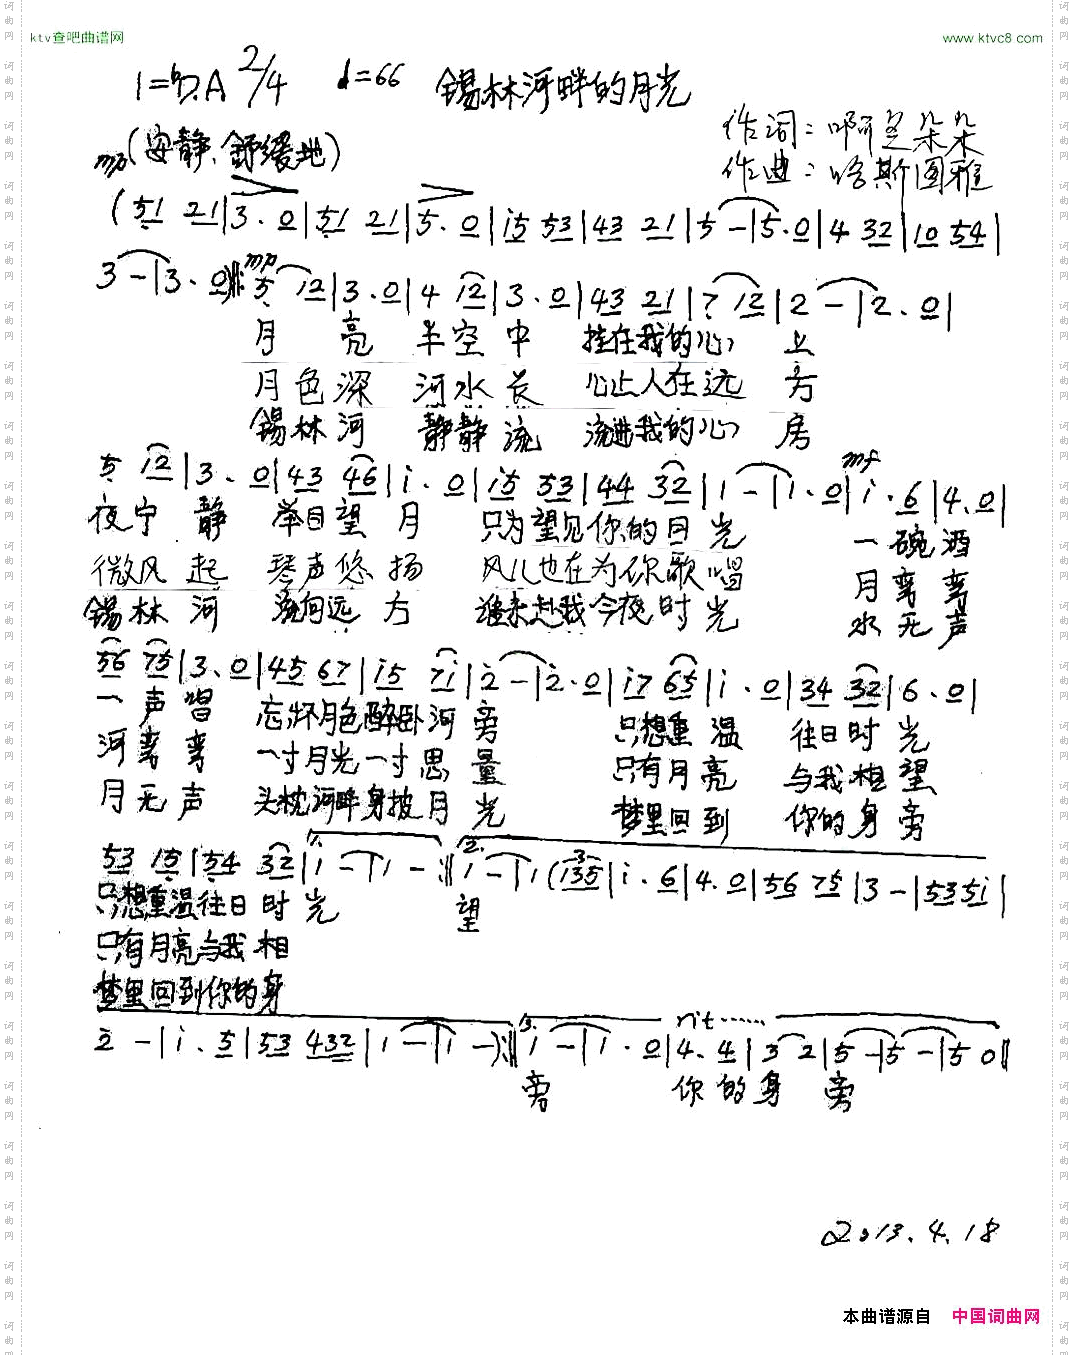 ktv查吧曲谱网
www.ktvc8.com
1=ᵇD.A 2/4 ♩=66 锡林河畔的月光
作词：啊宝朵朵
作曲：哈斯图雅
mp(安静、舒缓地)
(51 21|3.0|51 21|5.0|i5 53|43 21|5-|5.0|4 32|10 54|
3-|3.0)‖: mp 5 12|3.0|4 12|3.0|43 21|7 12|2-|2.0|
月亮 半空中 挂在我的心上
月色深 河水长 心上人在远方
锡林河 静静流 流进我的心房
5 12|3.0|43 46|i.0|i5 53|44 32|1-|1.0| mf i.6|4.0|
夜宁静 举目望月 只为望见你的目光 一碗酒
微风起 琴声悠扬 风儿也在为你歌唱 月弯弯
锡林河 流向远方 谁来赴我今夜时光 水无声
56 75|3.0|45 67|i5 7i|2-|2.0|i7 65|i.0|34 32|6.0|
一声唱 忘怀月色醉卧河旁 只想重温 往日时光
河弯弯 一寸月光一寸思量 只有月亮 与我相望
月无声 头枕河畔身披月光 梦里回到 你的身旁
53 15|54 32|1. i-|1-:‖2. 1-|1(3 135|i.6|4.0|56 75|3-|535i|
只想重温往日时光 望
只有月亮与我相
梦里回到你的身
2-|i.5|53 432|1-|1-):‖3. 1-|1.0| rit…… 4.4|3 2|5-|5-|5 0‖
旁 你的身旁
2013.4.18
本曲谱源自 中国词曲网